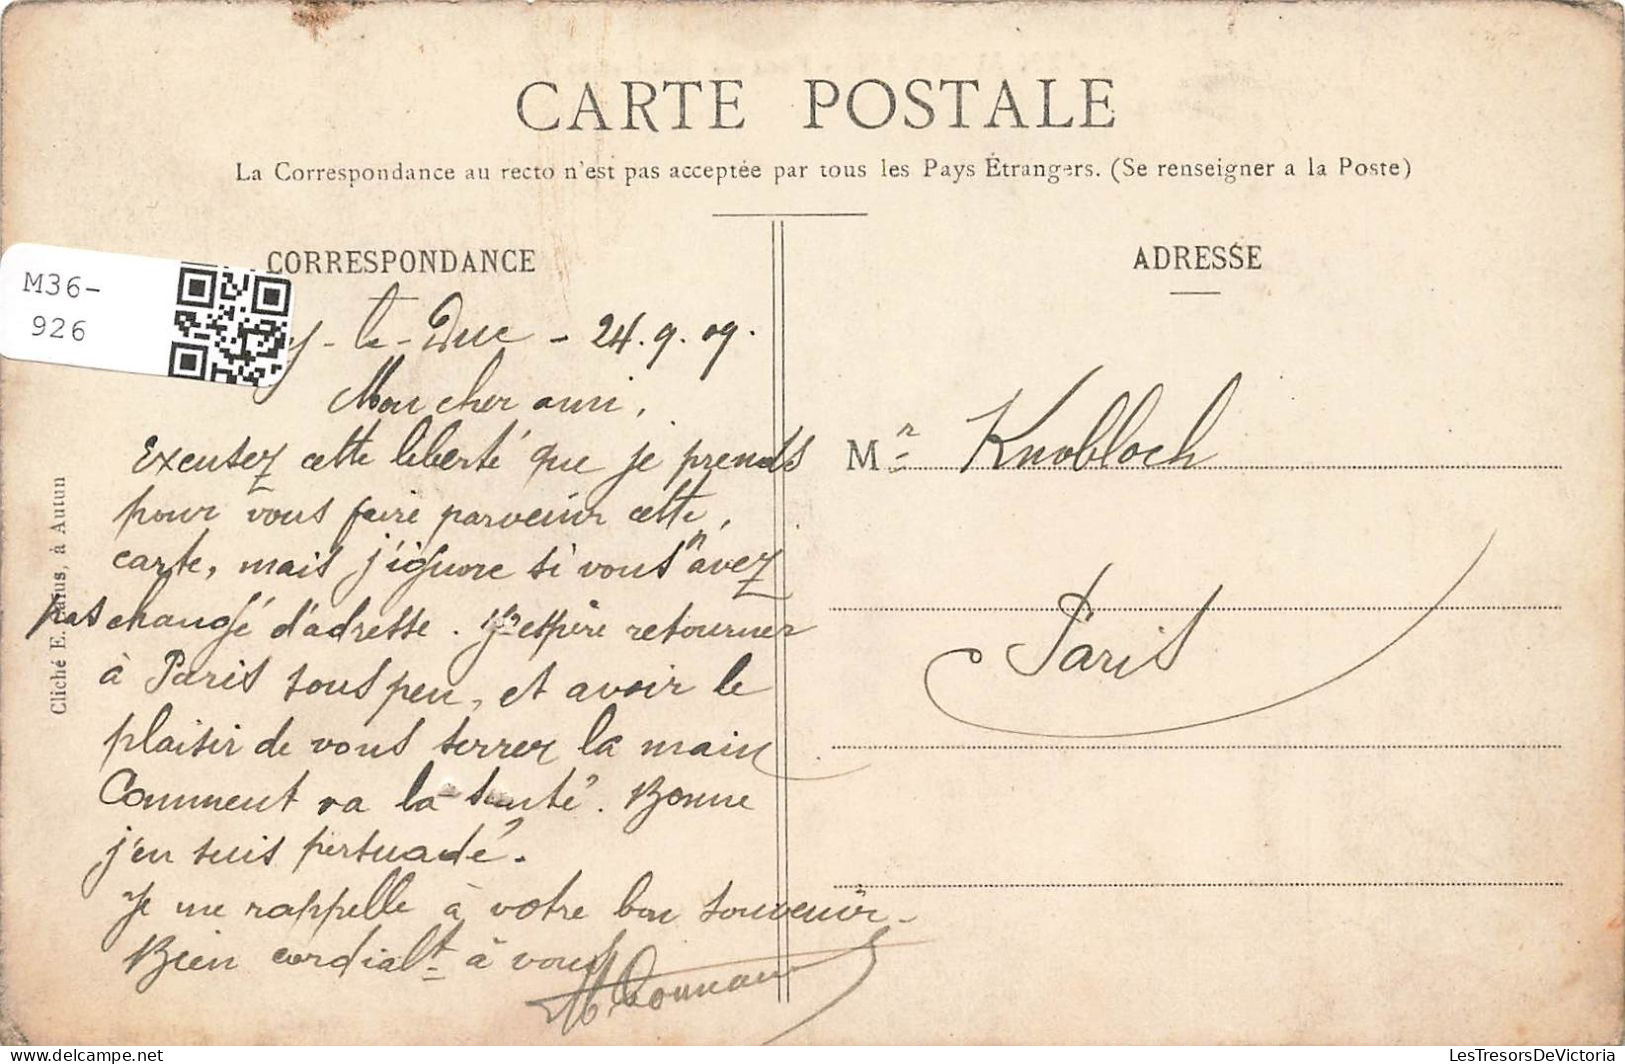 CARTE POSTALE
La Correspondance au recto n'est pas acceptée par tous les Pays Étrangers. (Se renseigner a la Poste)
CORRESPONDANCE
ADRESSE
M36-
926
Cliché E. à Autun
y-le-Duc - 24.9.09.
Mon cher ami,
Excusez cette liberté que je prends
pour vous faire parvenir cette
carte, mais j'ignore si vous n'avez
pas changé d'adresse. J'espère retourner
à Paris sous peu, et avoir le
plaisir de vous serrer la main
Comment va la santé. Bonne
j'en suis persuadé.
Je me rappelle à votre bon souvenir-
Bien cordialt à vous
Mr Knobloch
Paris
LesTresorsDeVictoria
delcampe.net